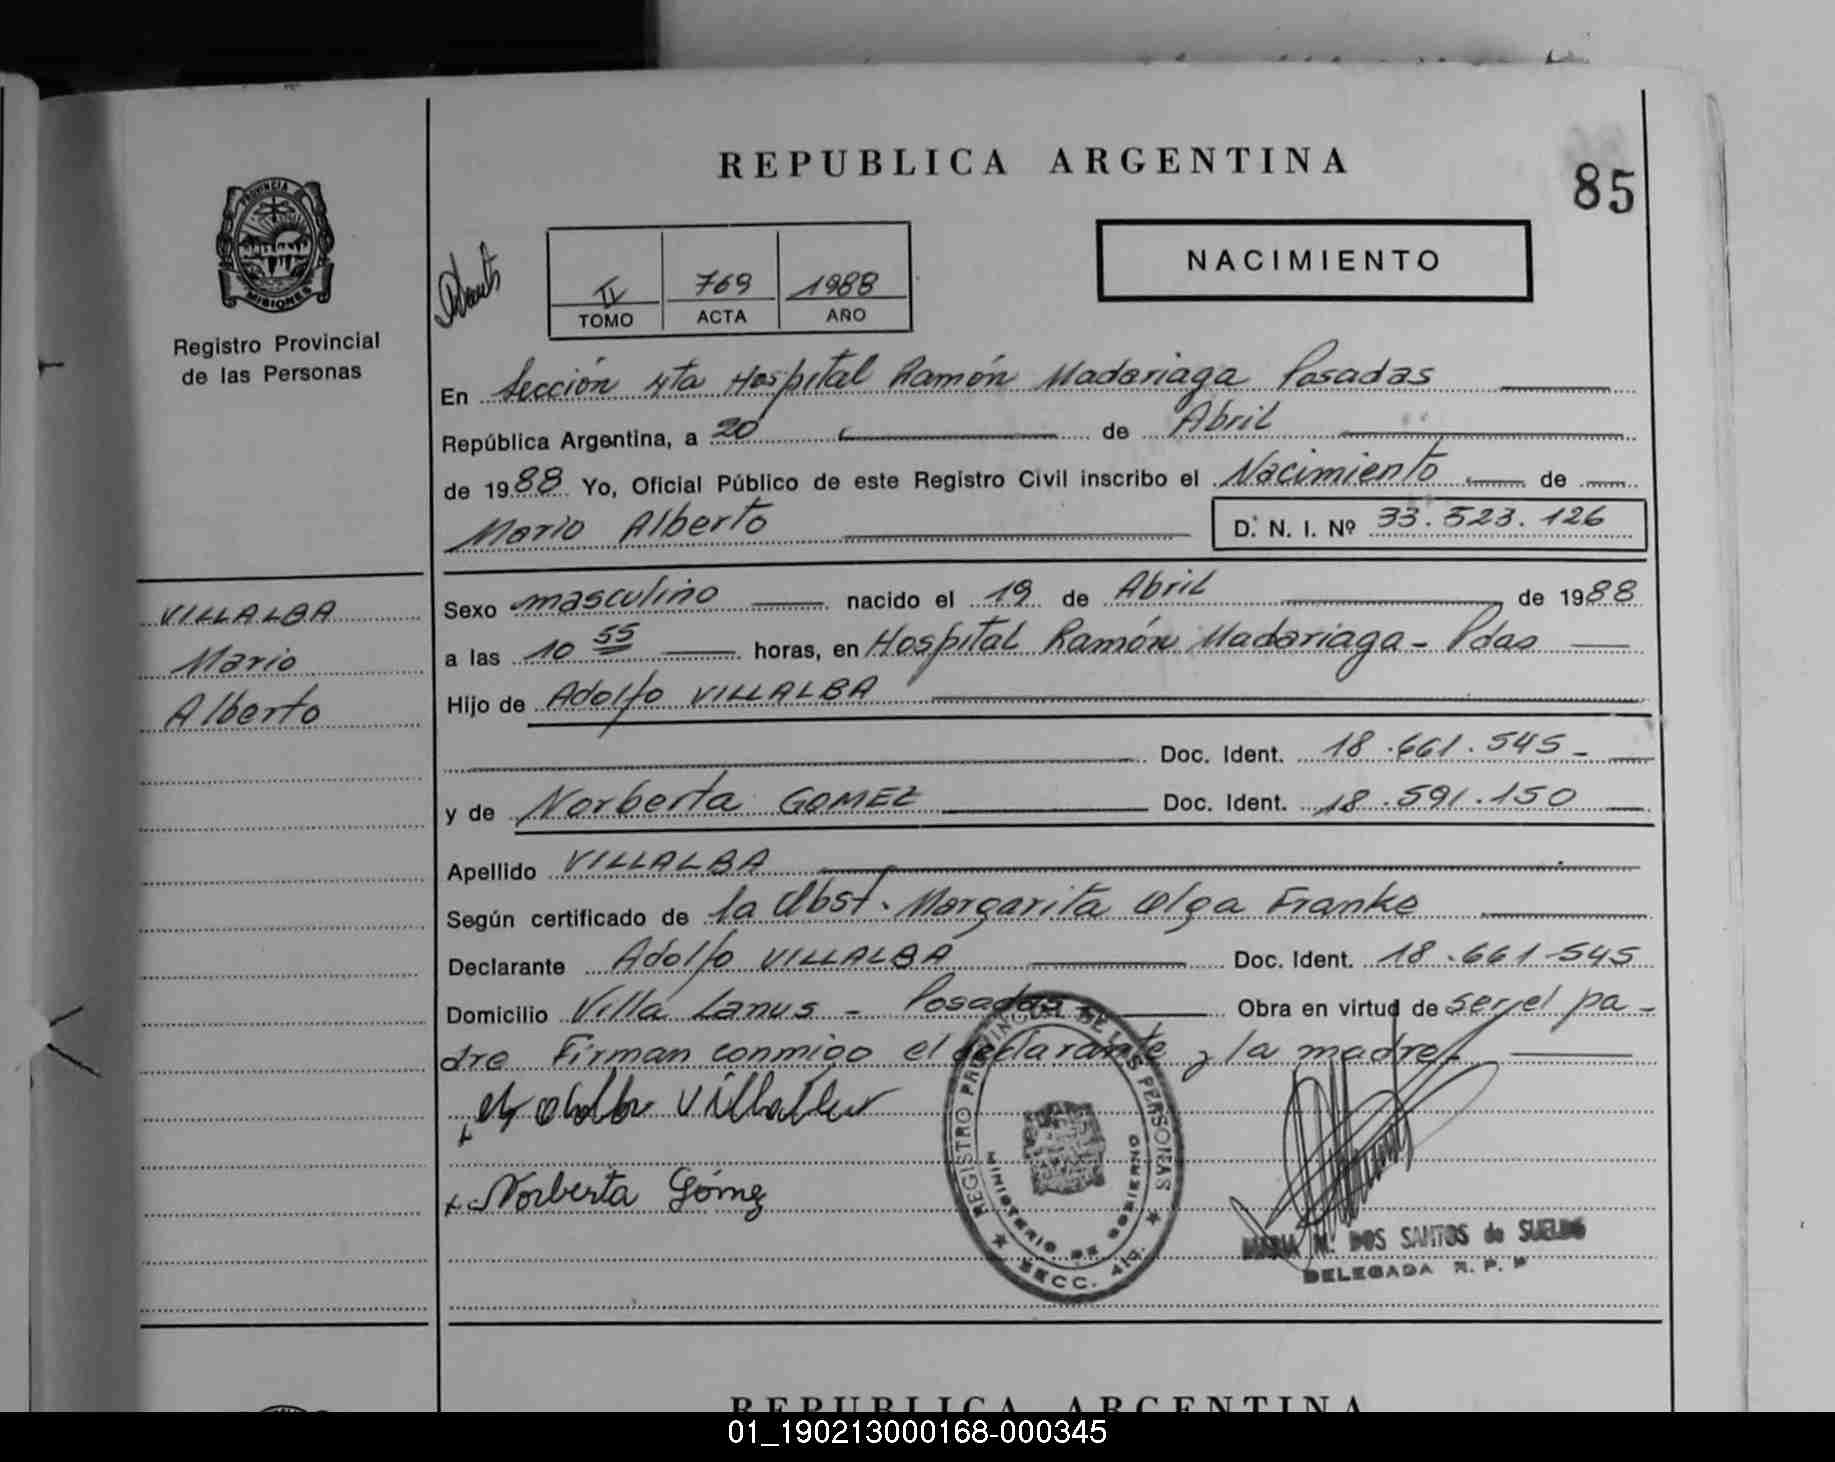 REPUBLICA ARGENTINA
85
PROVINCIA
MISIONES
Registro Provincial
de las Personas
IV 769 1988
TOMO ACTA AÑO
NACIMIENTO
En Sección 4ta Hospital Ramón Madariaga Posadas
República Argentina, a 20 de Abril
de 1988 Yo, Oficial Público de este Registro Civil inscribo el Nacimiento de
Mario Alberto D. N. I. Nº 33.523.126
VILLALBA
Mario
Alberto
Sexo masculino nacido el 19 de Abril de 1988
a las 10 55 horas, en Hospital Ramón Madariaga - Pdas
Hijo de Adolfo VILLALBA
Doc. Ident. 18.661.545-
y de Norberta GOMEZ Doc. Ident. 18.591.150
Apellido VILLALBA
Según certificado de la Obst. Margarita Olga Franke
Declarante Adolfo VILLALBA Doc. Ident. 18.661-545
Domicilio Villa Lanus - Posadas Obra en virtud de ser el pa-
dre Firman conmigo el declarante y la madre.
Villalba
Norberta Gómez
REGISTRO PROVINCIAL DE LAS PERSONAS
MINISTERIO DE GOBIERNO
SECC. 4ta.
MARIA M. DOS SANTOS de SUELDO
DELEGADA R. P. P
REPUBLICA ARGENTINA
01_190213000168-000345